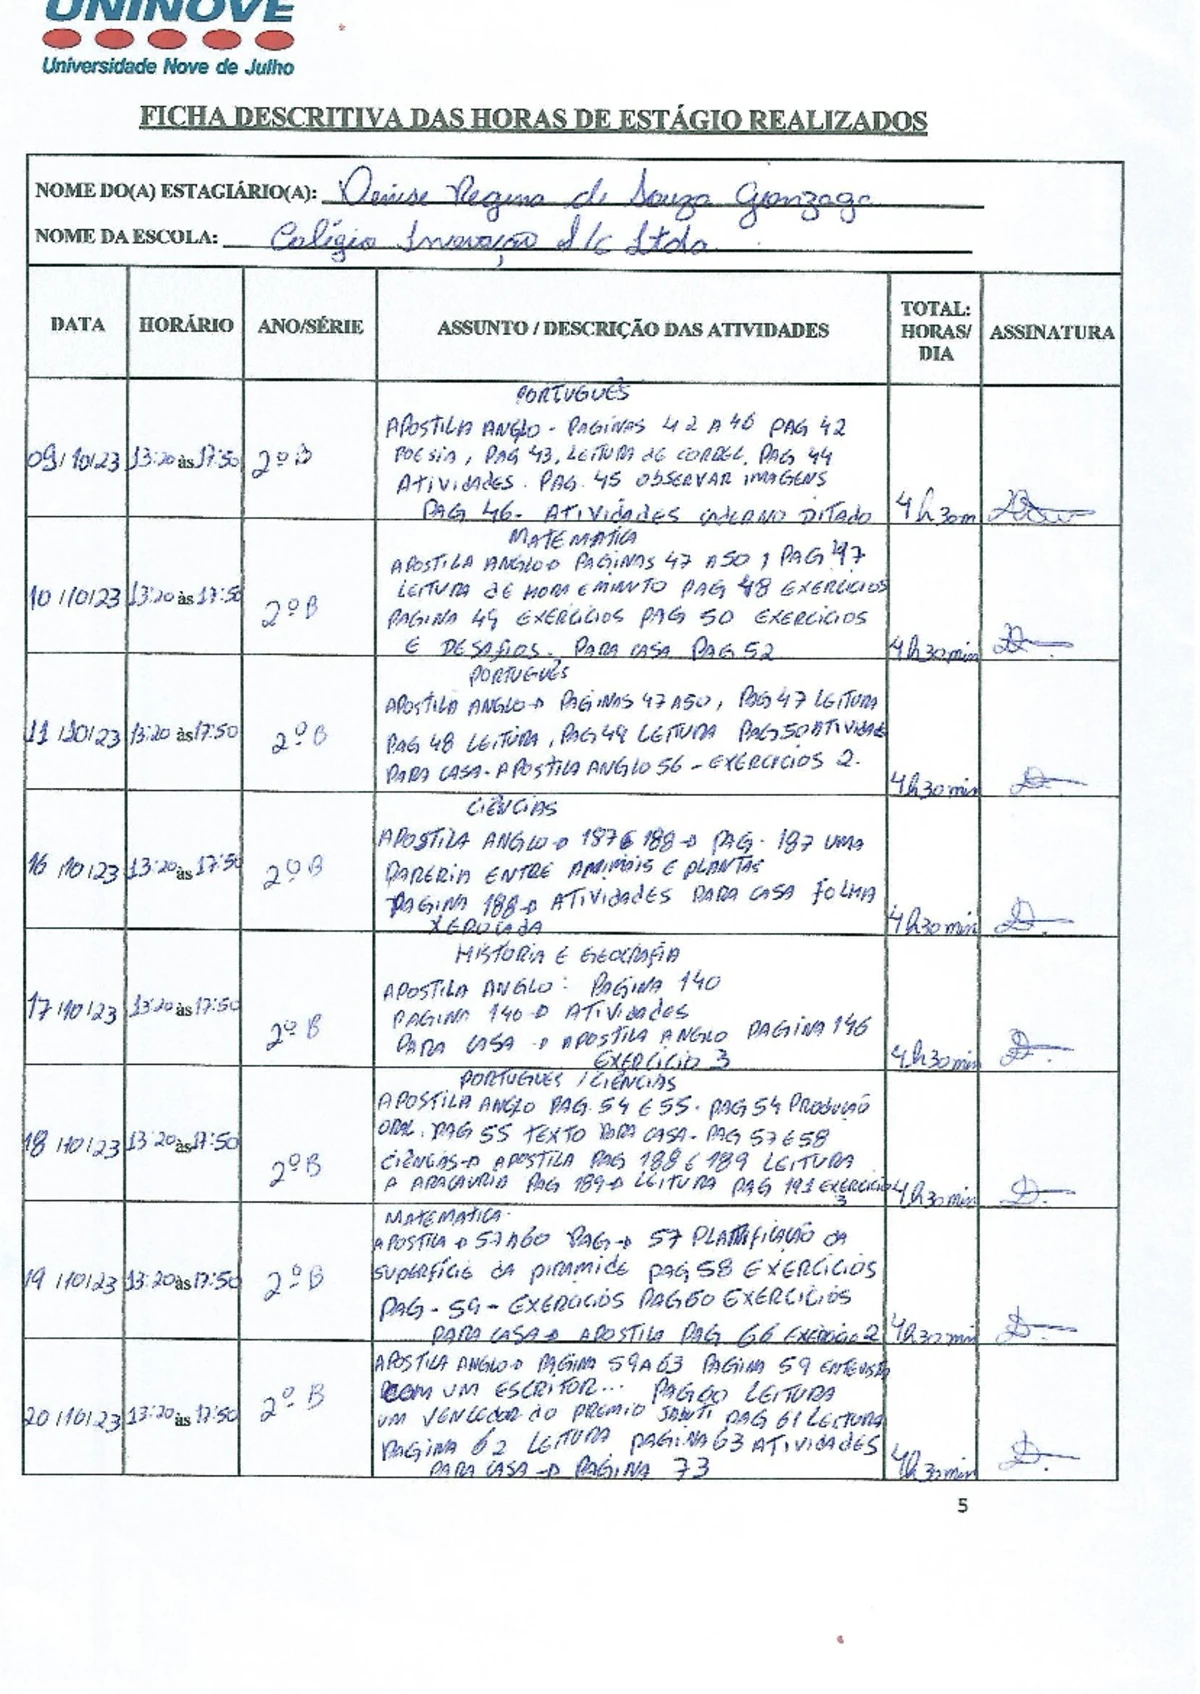 UNINOVE
Universidade Nove de Julho
FICHA DESCRITIVA DAS HORAS DE ESTÁGIO REALIZADOS
NOME DO(A) ESTAGIÁRIO(A): Denise Regina de Souza Gonzaga
NOME DA ESCOLA: Colégio Inovação S/C Ltda
DATA HORÁRIO ANO/SÉRIE ASSUNTO / DESCRIÇÃO DAS ATIVIDADES TOTAL: HORAS/ DIA ASSINATURA
PORTUGUÊS
APOSTILA ANGLO - PAGINAS 42 A 46 PAG 42
09/10/23 13:20 às 17:50 2º B POESIA, PAG 43, LEITURA DE CORDEL, PAG 44
ATIVIDADES. PAG. 45 OBSERVAR IMAGENS
PAG 46- ATIVIDADES CADERNO DITADO 4h30m
MATEMATICA
APOSTILA ANGLO PAGINAS 47 A 50, PAG 47
10/10/23 13:20 às 17:50 2º B LEITURA DE HORA E MINUTO PAG 48 EXERCÍCIOS
PAGINA 49 EXERCÍCIOS PAG 50 EXERCÍCIOS
E DESAFIOS. PARA CASA PAG 52 4h30min
PORTUGUÊS
APOSTILA ANGLO PAGINAS 47 A 50, PAG 47 LEITURA
11/10/23 13:20 às 17:50 2º B PAG 48 LEITURA, PAG 49 LEITURA PAG 50 ATIVIDADE
PARA CASA - APOSTILA ANGLO 56 - EXERCICIOS 2. 4h30min
CIÊNCIAS
APOSTILA ANGLO 187 E 188 PAG. 187 UMA
16/10/23 13:20 às 17:50 2º B PARERIA ENTRE ANIMAIS E PLANTAS
PAGINA 188 ATIVIDADES PARA CASA FOLHA
XEROCADA 4h30min
HISTORIA E GEOGRAFIA
APOSTILA ANGLO: PAGINA 140
17/10/23 13:20 às 17:50 2º B PAGINA 140 ATIVIDADES
PARA CASA APOSTILA ANGLO PAGINA 146
EXERCICIO 3 4h30min
PORTUGUES / CIÊNCIAS
APOSTILA ANGLO PAG. 54 E 55. PAG 54 PRODUÇÃO
18/10/23 13:20 às 17:50 2º B ORAL. PAG 55 TEXTO PARA CASA - PAG 57 E 58
CIÊNCIAS APOSTILA PAG 188 E 189 LEITURA
A ARAUCARIA PAG 189 LEITURA PAG 191 EXERCICIO 3 4h30min
MATEMATICA.
APOSTILA 57 A 60 PAG 57 PLANIFICAÇÃO DA
19/10/23 13:20 às 17:50 2º B SUPERFÍCIE DA PIRAMIDE PAG 58 EXERCÍCIOS
PAG - 59 - EXERCICIOS PAG 60 EXERCICIOS
PARA CASA APOSTILA PAG 66 EXERCICIO 2 4h30min
APOSTILA ANGLO PAGINA 59 A 63 PAGINA 59
20/10/23 13:20 às 17:50 2º B COM UM ESCRITOR... PAG 60 LEITURA
UM VENCEDOR DO PREMIO JABUTI PAG 61 LEITURA
PAGINA 62 LEITURA PAGINA 63 ATIVIDADES
PARA CASA PAGINA 73 4h30min
5